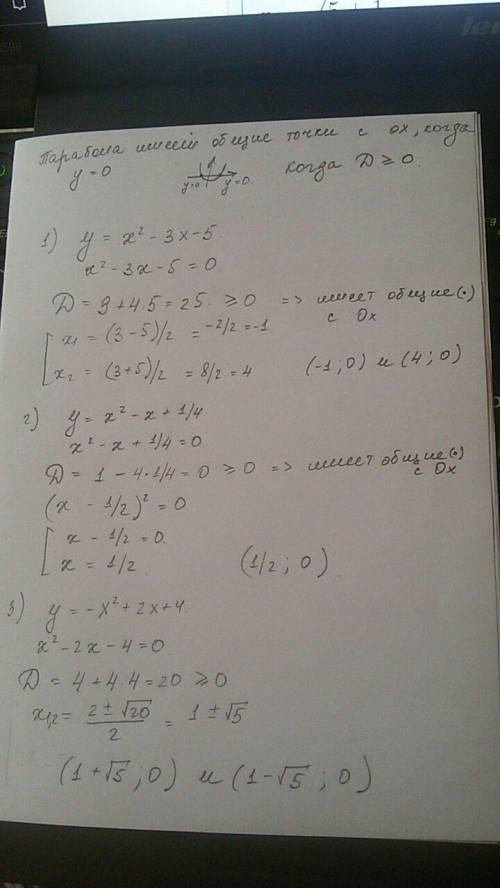 Парабола имеет общие точки с ox, когда
y = 0 y=0 y=0. когда D ≥ 0.
1) y = x² - 3x - 5.
x² - 3x - 5 = 0.
D = 9 + 4·5 = 25. ≥ 0 => имеет общие (·)
с Ox
x₁ = (3 - 5)/2 = -2/2 = -1
x₂ = (3+5)/2 = 8/2 = 4 (-1; 0) и (4; 0)
2) y = x² - x + 1/4
x² - x + 1/4 = 0.
D = 1 - 4·1/4 = 0 ≥ 0 => имеет общие (·)
с Ox
(x - 1/2)² = 0
x - 1/2 = 0.
x = 1/2 (1/2; 0).
3) y = -x² + 2x + 4.
x² - 2x - 4 = 0.
D = 4 + 4·4 = 20 ≥ 0
x₁,₂ = (2 ± √20)/2 = 1 ± √5
(1 + √5; 0) и (1 - √5; 0)